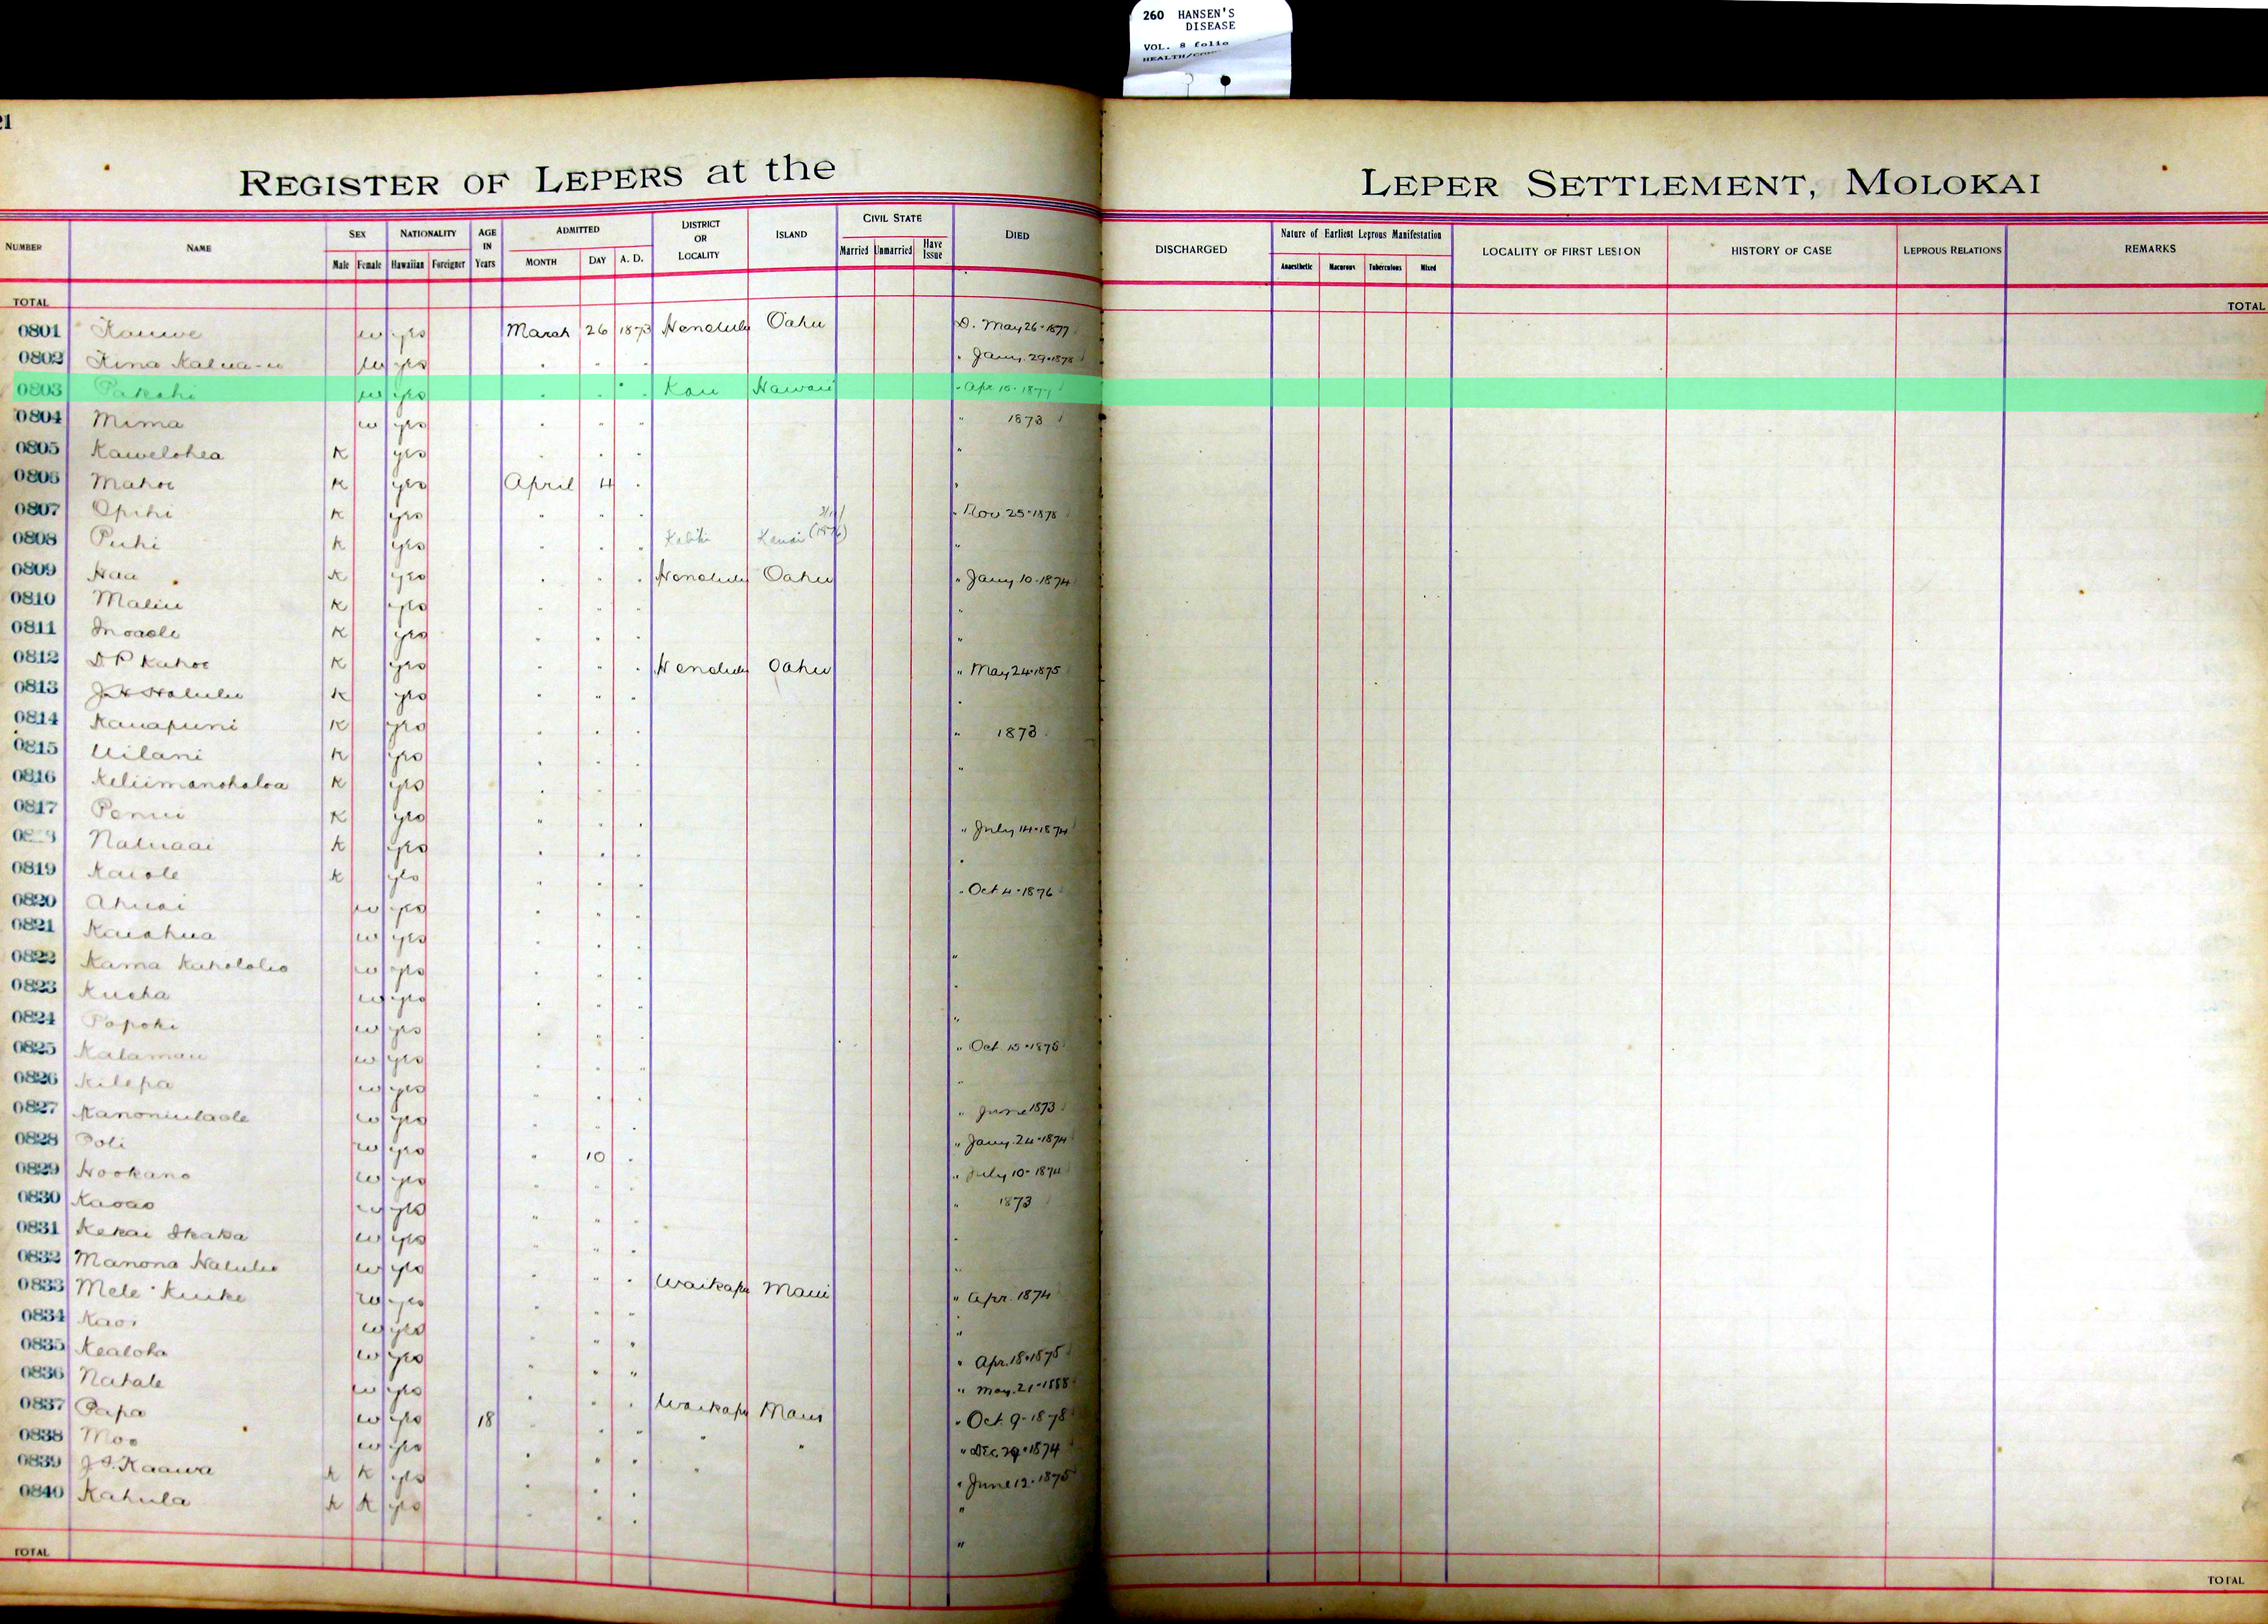 260 HANSEN'S
DISEASE
VOL. 8 folio
21
REGISTER OF LEPERS at the LEPER SETTLEMENT, MOLOKAI
NUMBER NAME SEX Male Female NATIONALITY Hawaiian Foreigner AGE IN Years ADMITTED MONTH DAY A. D. DISTRICT OR LOCALITY ISLAND CIVIL STATE Married Unmarried Have Issue DIED DISCHARGED Nature of Earliest Leprous Manifestation Anaesthetic Macurous Tuberculous Mixed LOCALITY OF FIRST LESION HISTORY OF CASE LEPROUS RELATIONS REMARKS
TOTAL TOTAL
0801 Kauwe w yes March 26 1873 Honolulu Oahu D. May 26-1877
0802 Kina Kalua-u w yes " " " " Jany. 29-1878
0803 Pakahi w yes " " " Kau Hawaii " Apr 15-1877
0804 Mima w yes " " " " 1873
0805 Kawelohea K yes " " " "
0806 Mahoe K yes April 4 " "
0807 Opihi K yes " " " " Nov 25-1878
0808 Puhi K yes " " " Kauai "
0809 Hau K yes " " " Honolulu Oahu " Jany 10-1874
0810 Maliu K yes " " " "
0811 Inoaole K yes " " " "
0812 D P Kahoe K yes " " " Honolulu Oahu " May 24-1875
0813 J H Halulu K yes " " " "
0814 Kauapuni K yes " " " " 1873
0815 Uilani K yes " " " "
0816 Keliimanohaloa K yes " " "
0817 Penui K yes " " " " July 14-1874
Naluaai K yes " " " "
0819 Kaiole K yes " " " " Oct 4-1876
0820 Ahuai w yes " " "
0821 Kaiahua w yes " " " "
0822 Kama Kaholokio w yes " " " "
0823 Kueha w yes " " " "
0824 Popoki w yes " " " " Oct. 15-1878
0825 Kalamau w yes " " " "
0826 Kilepa w yes " " " " June 1873
0827 Kanoniulaole w yes " " " " Jany. 24-1874
0828 Poli w yes " 10 " " July 10-1874
0829 Hookano w yes " " " " 1873
0830 Kaoao w yes " " " "
0831 Kekai Ikaka w yes " " " "
0832 Manona Halulu w yes " " " Waikapu Maui " Apr. 1874
0833 Mele Kuike w yes " " " "
0834 Kaoi w yes " " " " Apr. 18-1875
0835 Kealoha w yes " " " " May. 21-1888
0836 Nahale w yes " " " Waikapu Maui " Oct. 9-1878
0837 Papa w yes 18 " " " " " " Dec. 29-1874
0838 Moo w yes " " " " " June 12-1875
0839 J. S. Kaawa K K yes " " " "
0840 Kahula K K yes " " " "
TOTAL TOTAL